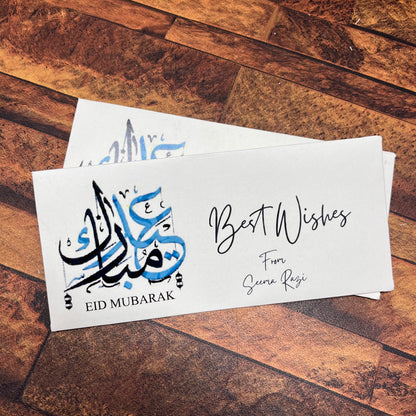 عيد مبارك
EID MUBARAK
Best Wishes
From
Seema Razi